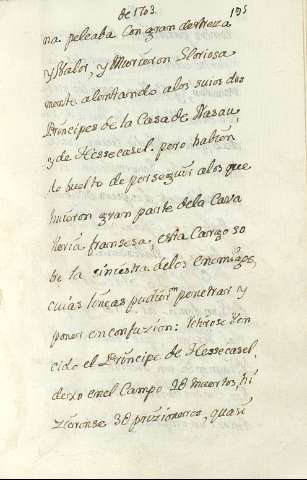 de 1703. 195
na peleaba Con gran destreza
y Valor, y Murieron Gloriosa
mente alentando alos suios dos
Príncipes de la Casa de Nasau,
y de Hessecasel. pero habien
do buelto de perseguir alos que
huieron gran parte dela Cava
lleria fransesa, esta Cargo so
bre la sinestra delos enemigos,
cuias lineas pudieron penetrar y
poner en confuzion: retirose Ven
cido el Príncipe de Hessecasel,
dexo en el Campo 2@ muertos, hi
zieronse 3@ prizioneros, quasi